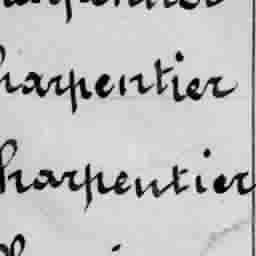 harpentier
harpentier